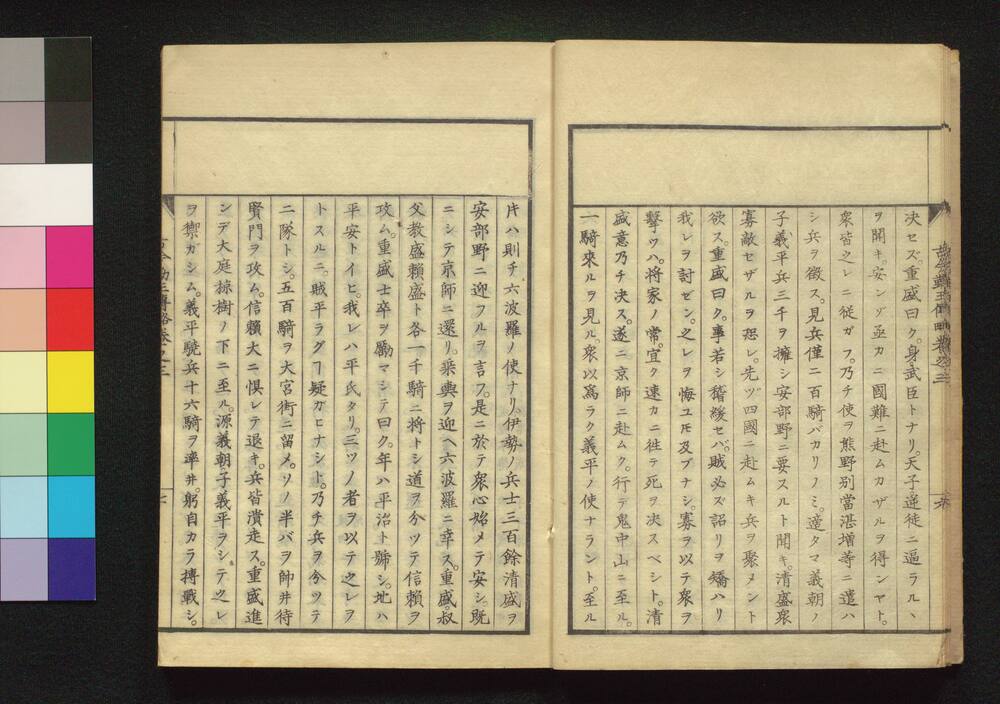 決セズ。重盛曰ク。身武臣トナリ。天子逆徒ニ逼ラルヽ
ヲ聞キ。安ンゾ亟カニ國難ニ赴ムカザルヲ得ンヤト。
衆皆之レニ從ガフ。乃チ使ヲ熊野別當湛増等ニ遣ハ
シ兵ヲ徴ス。見兵僅ニ百騎バカリノミ。適タマ義朝ノ
子義平兵三千ヲ擁シ安部野ニ要スルト聞キ。清盛衆
寡敵セザルヲ恐レ。先ヅ四國ニ赴ムキ兵ヲ聚メント
欲ス。重盛曰ク。事若シ稽緩セバ。賊必ズ詔リヲ矯ハリ
我レヲ討ゼン。之レヲ悔ユトモ及ブナシ。寡ヲ以テ衆ヲ
擊ツハ。將家ノ常。宜ク速カニ徃テ死ヲ決スベシト。清
盛意乃チ決ス。遂ニ京師ニ赴ムク。行テ鬼中山ニ至ル。
一騎來ルヲ見ル。衆以爲ラク義平ノ使ナラント。至ル
片ハ則チ六波羅ノ使ナリ。伊勢ノ兵士三百餘清盛ヲ
安部野ニ迎フルヲ言フ。是ニ於テ衆心始メテ安シ。既
ニシテ京師ニ還リ。乘輿ヲ迎ヘ六波羅ニ幸ス。重盛叔
父教盛賴盛ト各一千騎ニ將トシ道ヲ分ツテ信賴ヲ
攻ム。重盛士卒ヲ勵マシテ曰ク。年ハ平治ト號シ。地ハ
平安トイヒ。我レハ平氏タリ。三ツノ者ヲ以テ之レヲ
トスルニ。賊平ラグ疑ガヒナシト。乃チ兵ヲ分ツテ
二隊トシ。五百騎ヲ大宮街ニ留メ。ソノ半バヲ帥井待
賢門ヲ攻ム。信賴大ニ惧レテ退キ。兵皆潰走ス。重盛進
ンデ大庭椋樹ノ下ニ至ル。源義朝子義平ヲシテ之レ
ヲ禦ガシム。義平驍兵十六騎ヲ率井。躬自カラ搏戰シ。